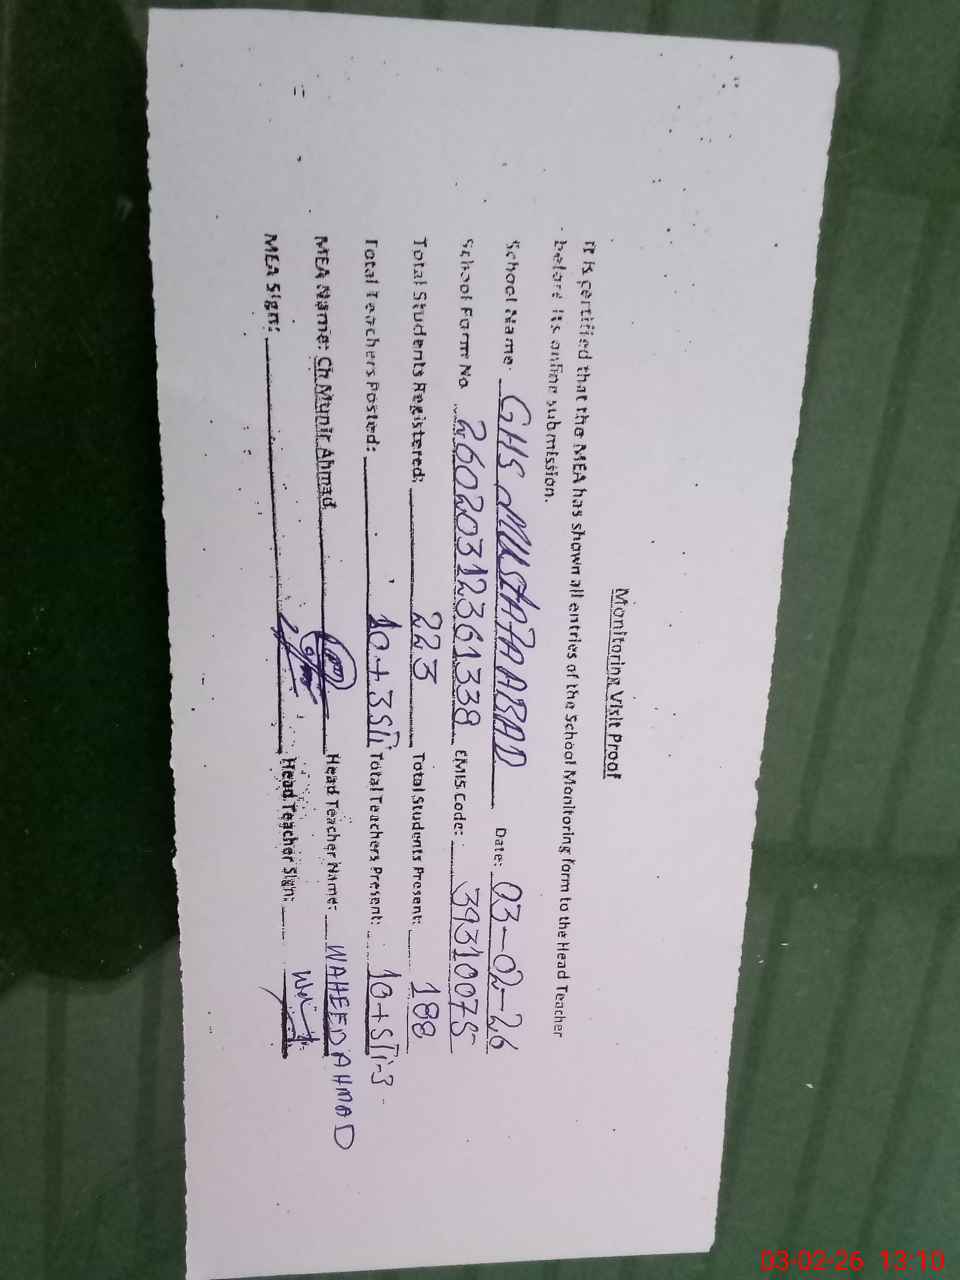 Monitoring Visit Proof
It is certified that the MEA has shown all entries of the School Monitoring form to the Head Teacher
before its online submission.
School Name: GHS MUSTAFAABAD Date: 03-02-26
School Form No. 2602031236 1338 EMIS Code: 39310075
Total Students Registered: 223 Total Students Present: 188
Total Teachers Posted: 10+3STi Total Teachers Present: 10+STi-3
MEA Name: Ch Munir Ahmad Head Teacher Name: WAHEED AHMAD
MEA Sign: Head Teacher Sign:
03-02-26 13:10